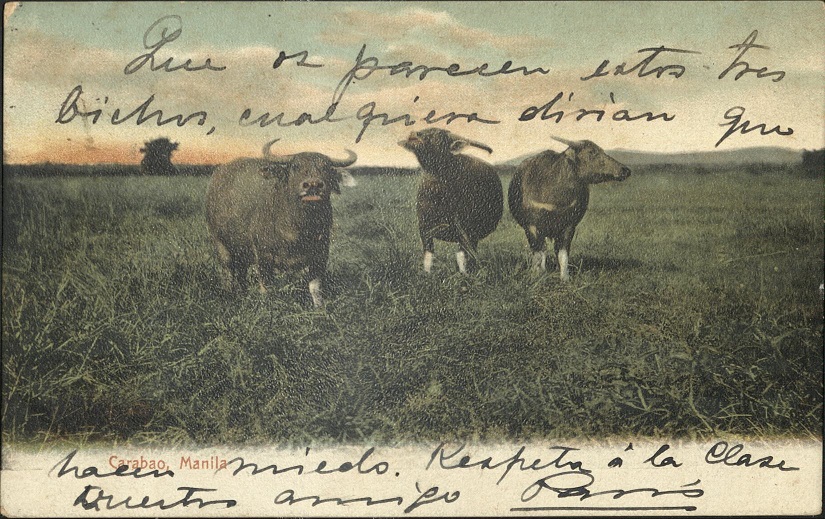 Que os parecen estos tres
bichos, cualquiera dirian que
Carabao, Manila
hacen miedo. Respeta á la Clase
Vuestro amigo